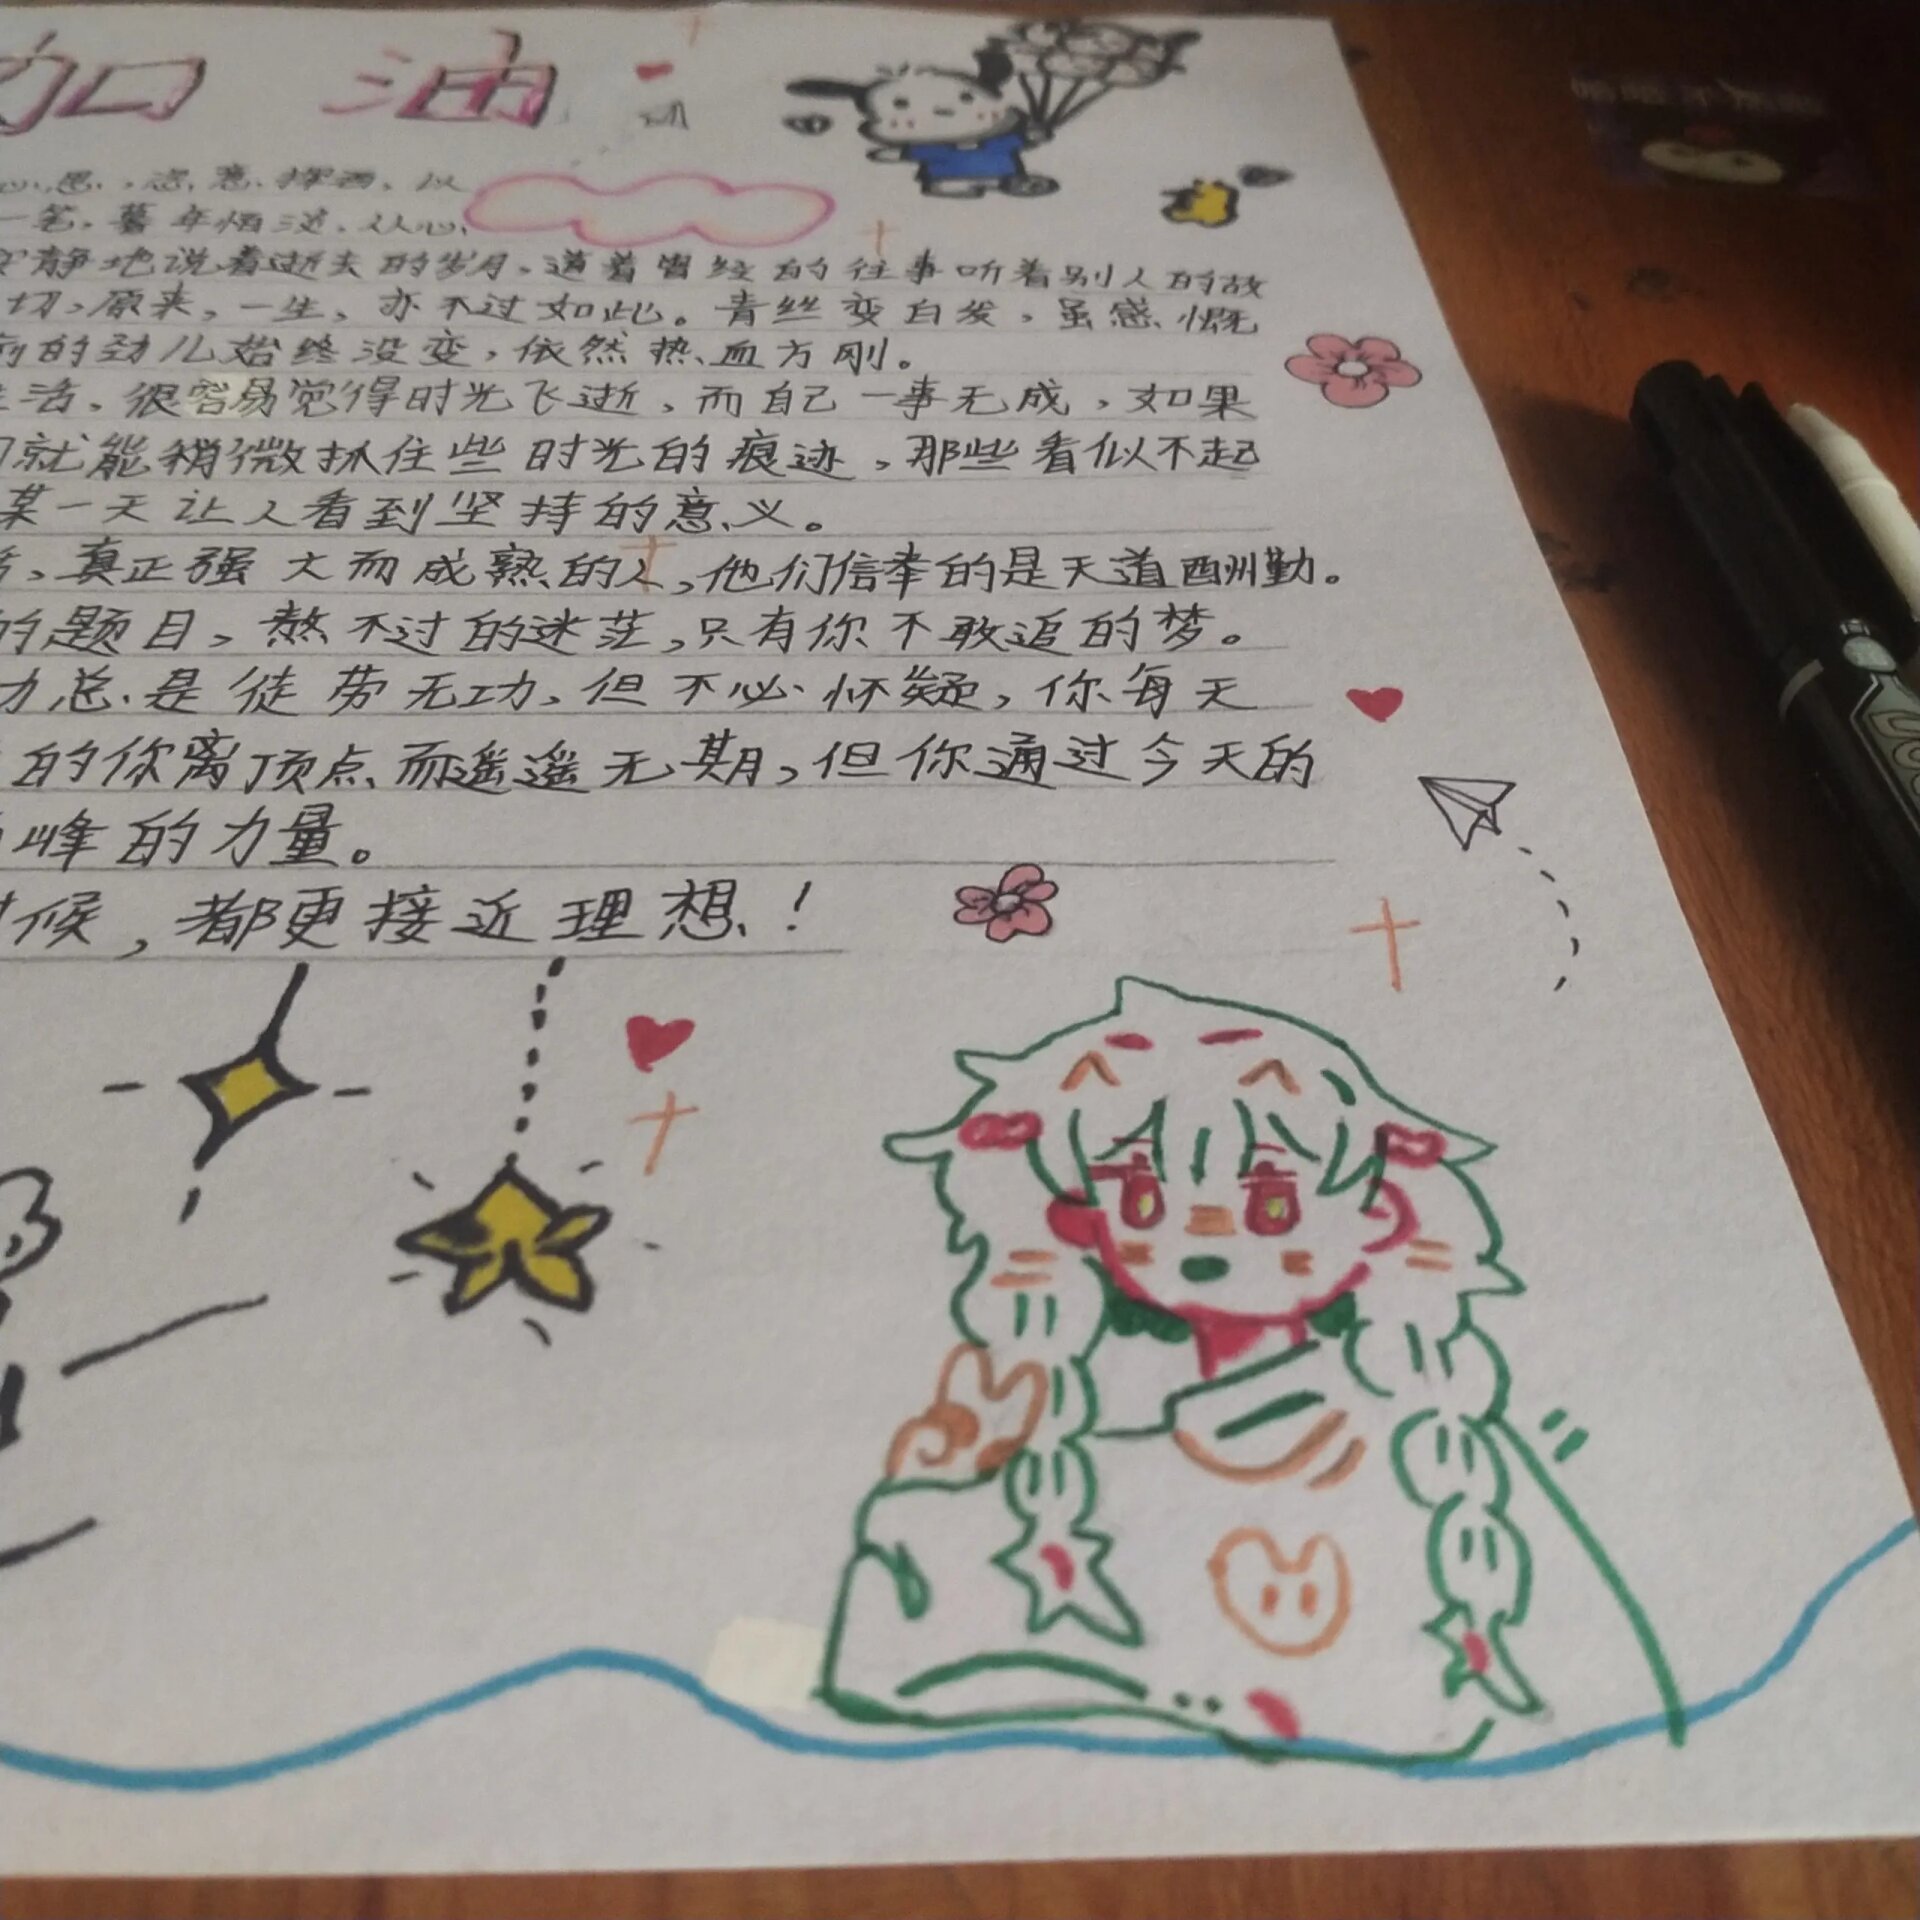 加 油
恣意挥洒，以
一笔，暮年
静地说着逝去的岁月，道着曾经的往事听着别人的故
切，原来，一生，亦不过如此。青丝变白发，虽感慨
的劲儿始终没变，依然热血方刚。
活，很容易觉得时光飞逝，而自己一事无成，如果
就能稍微抓住些时光的痕迹，那些看似不起
某一天让人看到坚持的意义。
，真正强大而成熟的人，他们信奉的是天道酬勤。
的题目，熬不过的迷茫，只有你不敢追的梦。
力总是徒劳无功，但不必怀疑，你每天
的你离顶点而遥遥无期，但你通过今天的
峰的力量。
时候，都更接近理想！